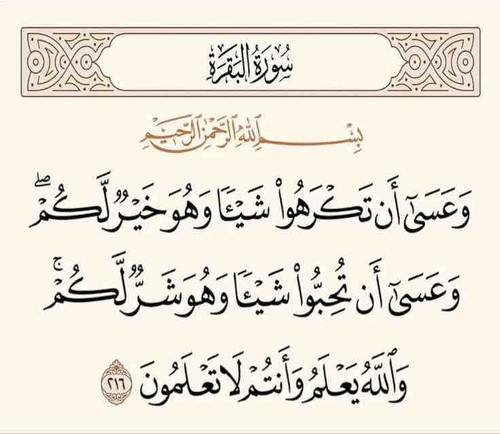 سُورَةُ البَقَرَةِ
بِسْمِ ٱللَّهِ ٱلرَّحْمَٰنِ ٱلرَّحِيمِ
وَعَسَىٰٓ أَن تَكْرَهُوا۟ شَيْـًٔا وَهُوَ خَيْرٌ لَّكُمْ ۖ
وَعَسَىٰٓ أَن تُحِبُّوا۟ شَيْـًٔا وَهُوَ شَرٌّ لَّكُمْ ۚ
وَٱللَّهُ يَعْلَمُ وَأَنتُمْ لَا تَعْلَمُونَ ٢١٦